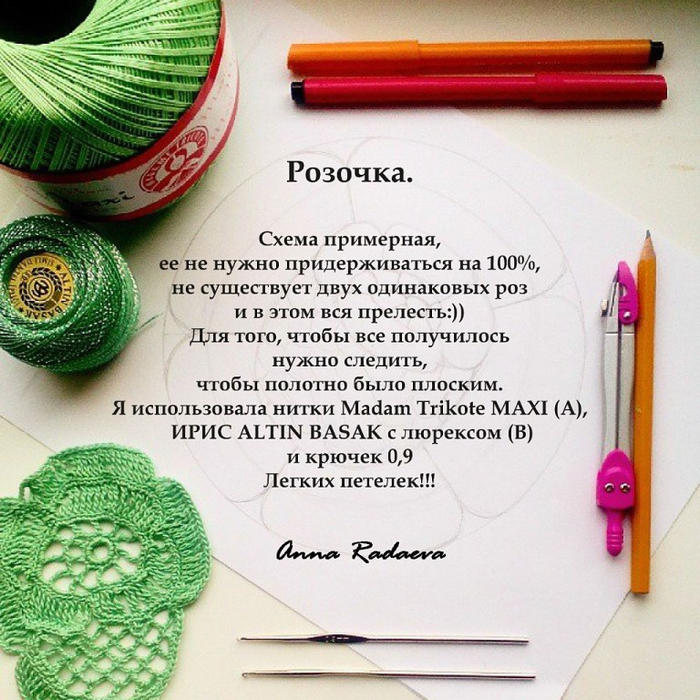 Розочка.
Схема примерная,
ее не нужно придерживаться на 100%,
не существует двух одинаковых роз
и в этом вся прелесть:))
Для того, чтобы все получилось
нужно следить,
чтобы полотно было плоским.
Я использовала нитки Madam Trikote MAXI (A),
ИРИС ALTIN BASAK с люрексом (B)
и крючек 0,9
Легких петелек!!!
Anna Radaeva
ALTIN BASAK